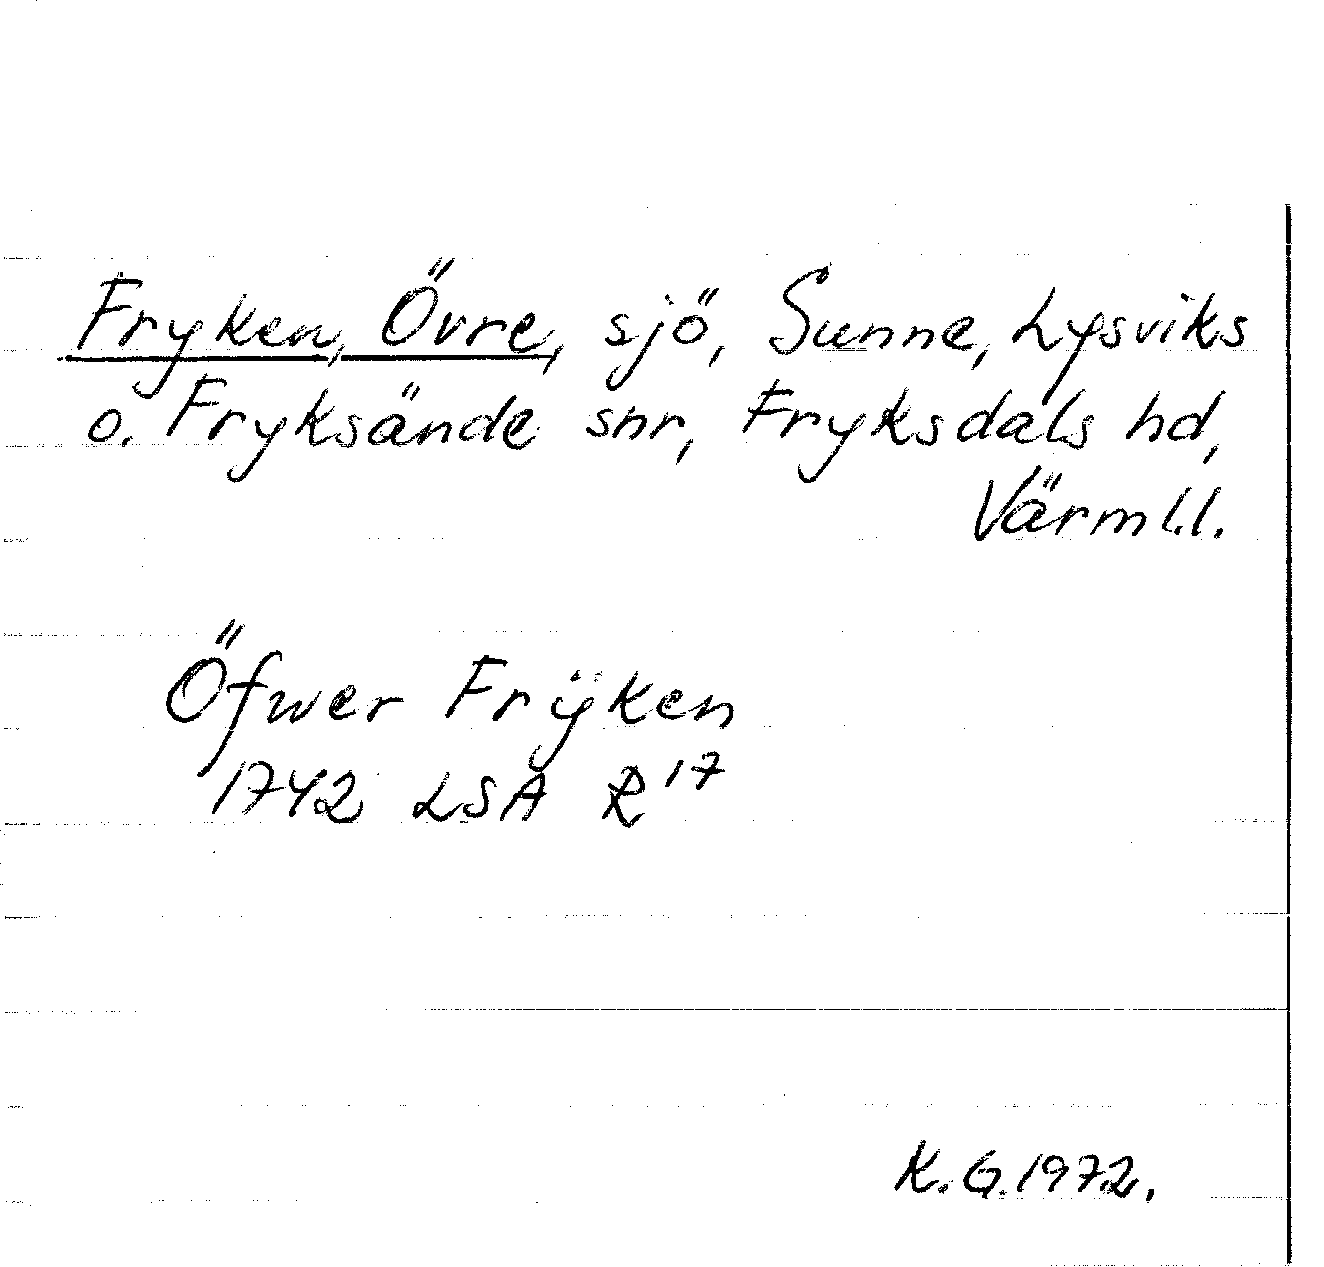 Fryken, Övre, sjö, Sunne, Lysviks
o. Fryksände snr, Fryksdals hd,
Värml.l.
Öfwer Frÿken
1742 LSA R 17
K.G.1972.